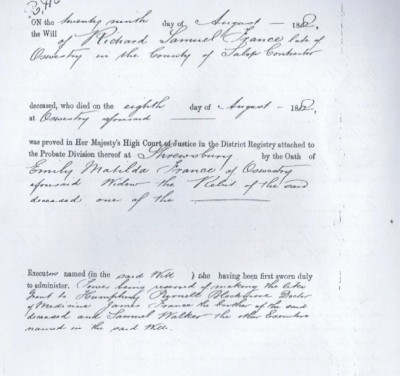 ON the twenty ninth day of August 188,
the Will
of Richard Samuel France late of
Oswestry in the County of Salop Contractor
deceased, who died on the eighth day of August 188,
at Oswestry aforesaid
was proved in Her Majesty's High Court of Justice in the District Registry attached to
the Probate Division thereof at Shrewsbury by the Oath of
Emily Matilda France of Oswestry
aforesaid Widow the Relict of the said
deceased one of the
Executors named (in the said Will ) she having been first sworn duly
to administer. Power being reserved of making the like
Grant to Humphrey Blackburne Doctor
of Medicine James France the brother of the said
deceased and Samuel Walker the other Executors
named in the said Will.